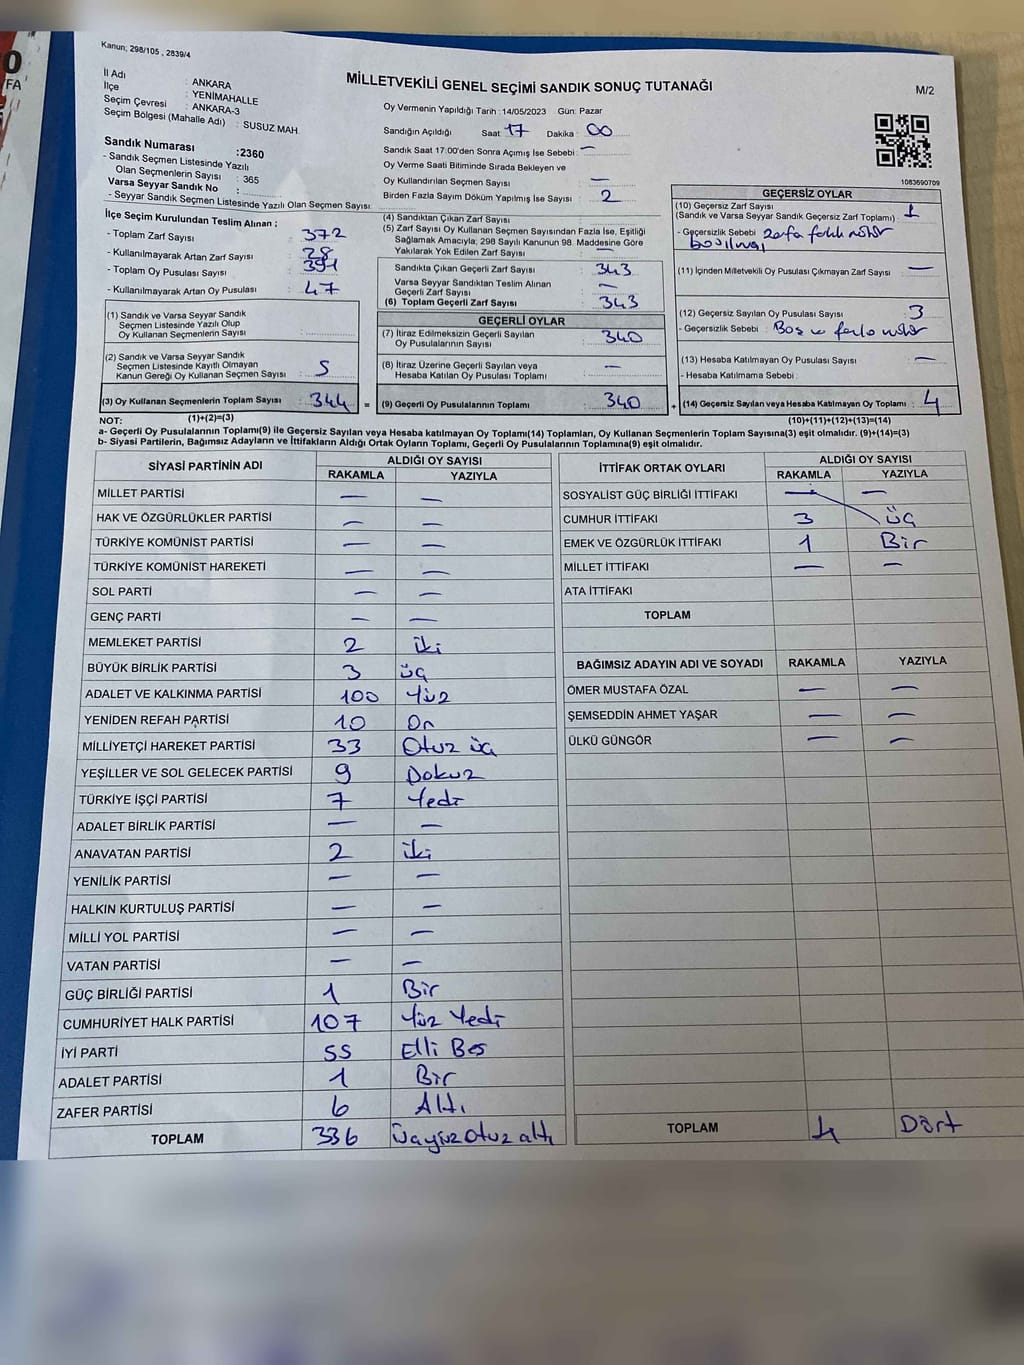 0
FA
Kanun; 298/105 , 2839/4
MİLLETVEKİLİ GENEL SEÇİMİ SANDIK SONUÇ TUTANAĞI
M/2
İl Adı : ANKARA
İlçe : YENİMAHALLE
Seçim Çevresi : ANKARA-3
Seçim Bölgesi (Mahalle Adı) : SUSUZ MAH.
Oy Vermenin Yapıldığı Tarih : 14/05/2023 Gün: Pazar
Sandığın Açıldığı Saat 17 Dakika : 00
Sandık Saat 17:00'den Sonra Açımış İse Sebebi: —
Oy Verme Saati Bitiminde Sırada Bekleyen ve
Oy Kullandırılan Seçmen Sayısı —
Birden Fazla Sayım Döküm Yapılmış İse Sayısı : 2
1083690709
Sandık Numarası :2360
- Sandık Seçmen Listesinde Yazılı
Olan Seçmenlerin Sayısı : 365
Varsa Seyyar Sandık No :
- Seyyar Sandık Seçmen Listesinde Yazılı Olan Seçmen Sayısı:
İlçe Seçim Kurulundan Teslim Alınan :
- Toplam Zarf Sayısı : 372
- Kullanılmayarak Artan Zarf Sayısı : 28
- Toplam Oy Pusulası Sayısı : 391
- Kullanılmayarak Artan Oy Pusulası : 47
(1) Sandık ve Varsa Seyyar Sandık
Seçmen Listesinde Yazılı Olup
Oy Kullanan Seçmenlerin Sayısı :
(2) Sandık ve Varsa Seyyar Sandık
Seçmen Listesinde Kayıtlı Olmayan
Kanun Gereği Oy Kullanan Seçmen Sayısı : 5
(3) Oy Kullanan Seçmenlerin Toplam Sayısı : 344 =
(1)+(2)=(3)
(4) Sandıktan Çıkan Zarf Sayısı :
(5) Zarf Sayısı Oy Kullanan Seçmen Sayısından Fazla İse, Eşitliği
Sağlamak Amacıyla; 298 Sayılı Kanunun 98. Maddesine Göre
Yakılarak Yok Edilen Zarf Sayısı : —
Sandıkta Çıkan Geçerli Zarf Sayısı : 343
Varsa Seyyar Sandıktan Teslim Alınan
Geçerli Zarf Sayısı : —
(6) Toplam Geçerli Zarf Sayısı : 343
GEÇERLİ OYLAR
(7) İtiraz Edilmeksizin Geçerli Sayılan
Oy Pusulalarının Sayısı : 340
(8) İtiraz Üzerine Geçerli Sayılan veya
Hesaba Katılan Oy Pusulası Toplamı : —
(9) Geçerli Oy Pusulalarının Toplamı : 340 +
GEÇERSİZ OYLAR
(10) Geçersiz Zarf Sayısı : 1
(Sandık ve Varsa Seyyar Sandık Geçersiz Zarf Toplamı)
- Geçersizlik Sebebi
(11) İçinden Milletvekili Oy Pusulası Çıkmayan Zarf Sayısı : —
(12) Geçersiz Sayılan Oy Pusulası Sayısı : 3
- Geçersizlik Sebebi : Boş
(13) Hesaba Katılmayan Oy Pusulası Sayısı : —
- Hesaba Katılmama Sebebi :
(14) Geçersiz Sayılan veya Hesaba Katılmayan Oy Toplamı : 4
(10)+(11)+(12)+(13)=(14)
NOT:
a- Geçerli Oy Pusulalarının Toplamı(9) ile Geçersiz Sayılan veya Hesaba katılmayan Oy Toplamı(14) Toplamları, Oy Kullanan Seçmenlerin Toplam Sayısına(3) eşit olmalıdır. (9)+(14)=(3)
b- Siyasi Partilerin, Bağımsız Adayların ve İttifakların Aldığı Ortak Oyların Toplamı, Geçerli Oy Pusulalarının Toplamına(9) eşit olmalıdır.
SİYASİ PARTİNİN ADI ALDIĞI OY SAYISI
RAKAMLA YAZIYLA
MİLLET PARTİSİ — —
HAK VE ÖZGÜRLÜKLER PARTİSİ — —
TÜRKİYE KOMÜNİST PARTİSİ — —
TÜRKİYE KOMÜNİST HAREKETİ — —
SOL PARTİ — —
GENÇ PARTİ — —
MEMLEKET PARTİSİ 2 iki
BÜYÜK BİRLİK PARTİSİ 3 üç
ADALET VE KALKINMA PARTİSİ 100 Yüz
YENİDEN REFAH PARTİSİ 10 On
MİLLİYETÇİ HAREKET PARTİSİ 33 Otuz üç
YEŞİLLER VE SOL GELECEK PARTİSİ 9 Dokuz
TÜRKİYE İŞÇİ PARTİSİ 7 Yedi
ADALET BİRLİK PARTİSİ — —
ANAVATAN PARTİSİ 2 iki
YENİLİK PARTİSİ — —
HALKIN KURTULUŞ PARTİSİ — —
MİLLİ YOL PARTİSİ — —
VATAN PARTİSİ — —
GÜÇ BİRLİĞİ PARTİSİ 1 Bir
CUMHURİYET HALK PARTİSİ 107 Yüz Yedi
İYİ PARTİ 55 Elli Beş
ADALET PARTİSİ 1 Bir
ZAFER PARTİSİ 6 Altı
TOPLAM 336 Üçyüz otuz altı
İTTİFAK ORTAK OYLARI ALDIĞI OY SAYISI
RAKAMLA YAZIYLA
SOSYALIST GÜÇ BİRLİĞİ İTTİFAKI — —
CUMHUR İTTİFAKI 3 üç
EMEK VE ÖZGÜRLÜK İTTİFAKI 1 Bir
MİLLET İTTİFAKI — —
ATA İTTİFAKI
TOPLAM
BAĞIMSIZ ADAYIN ADI VE SOYADI RAKAMLA YAZIYLA
ÖMER MUSTAFA ÖZAL — —
ŞEMSEDDİN AHMET YAŞAR — —
ÜLKÜ GÜNGÖR — —
TOPLAM 4 Dört